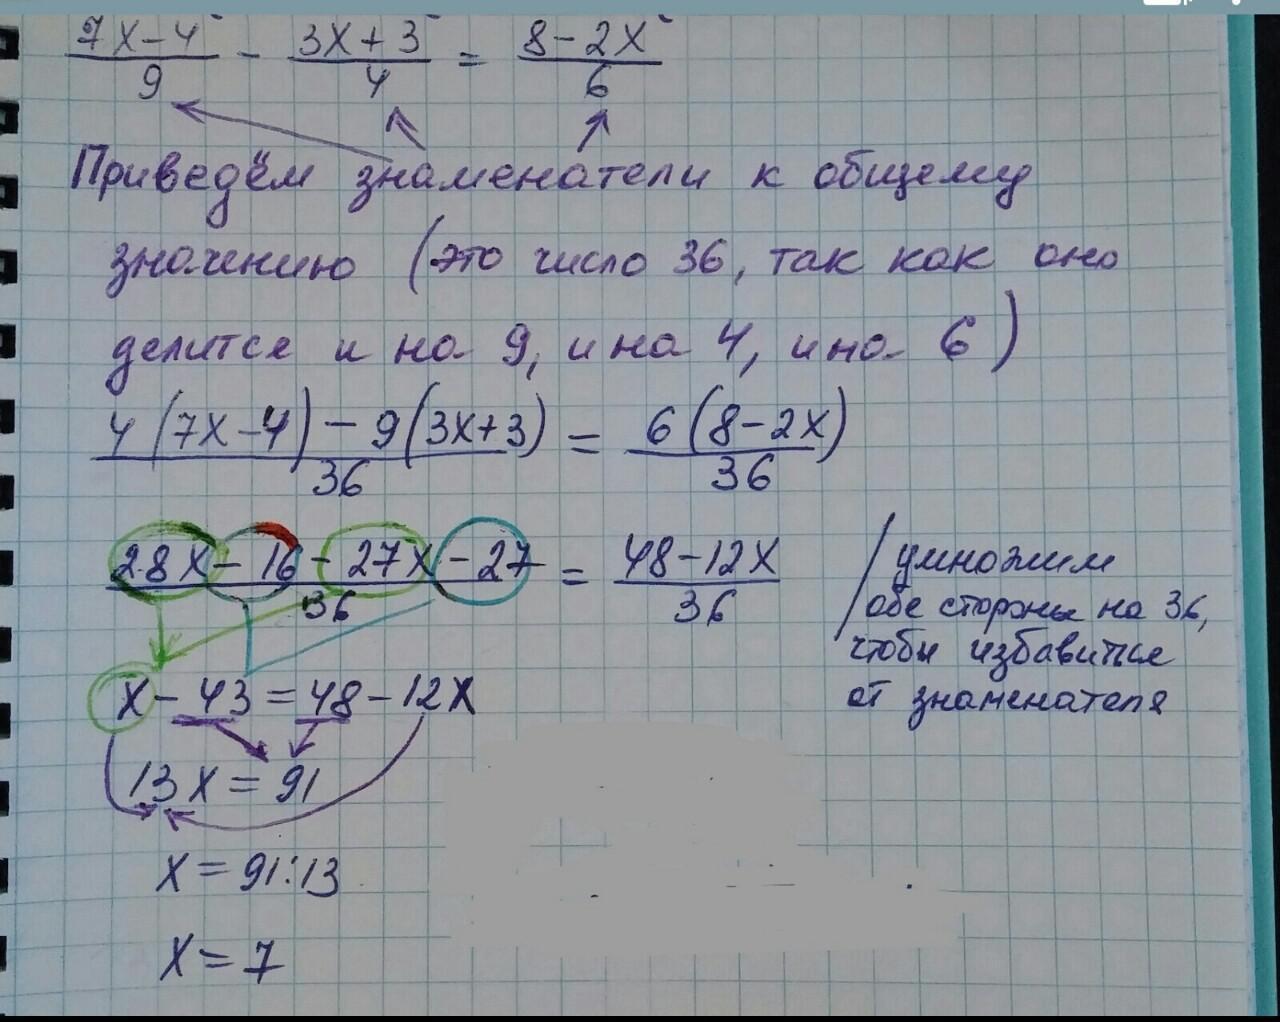 (7x-4)/9 - (3x+3)/4 = (8-2x)/6
Приведём знаменатели к общему
значению (это число 36, так как оно
делится и на 9, и на 4, и на 6)
(4(7x-4) - 9(3x+3))/36 = 6(8-2x)/36
(28x - 16 - 27x - 27)/36 = (48-12x)/36
/умножим
обе стороны на 36,
чтобы избавиться
от знаменателя
x - 43 = 48 - 12x
13x = 91
x = 91:13
x = 7